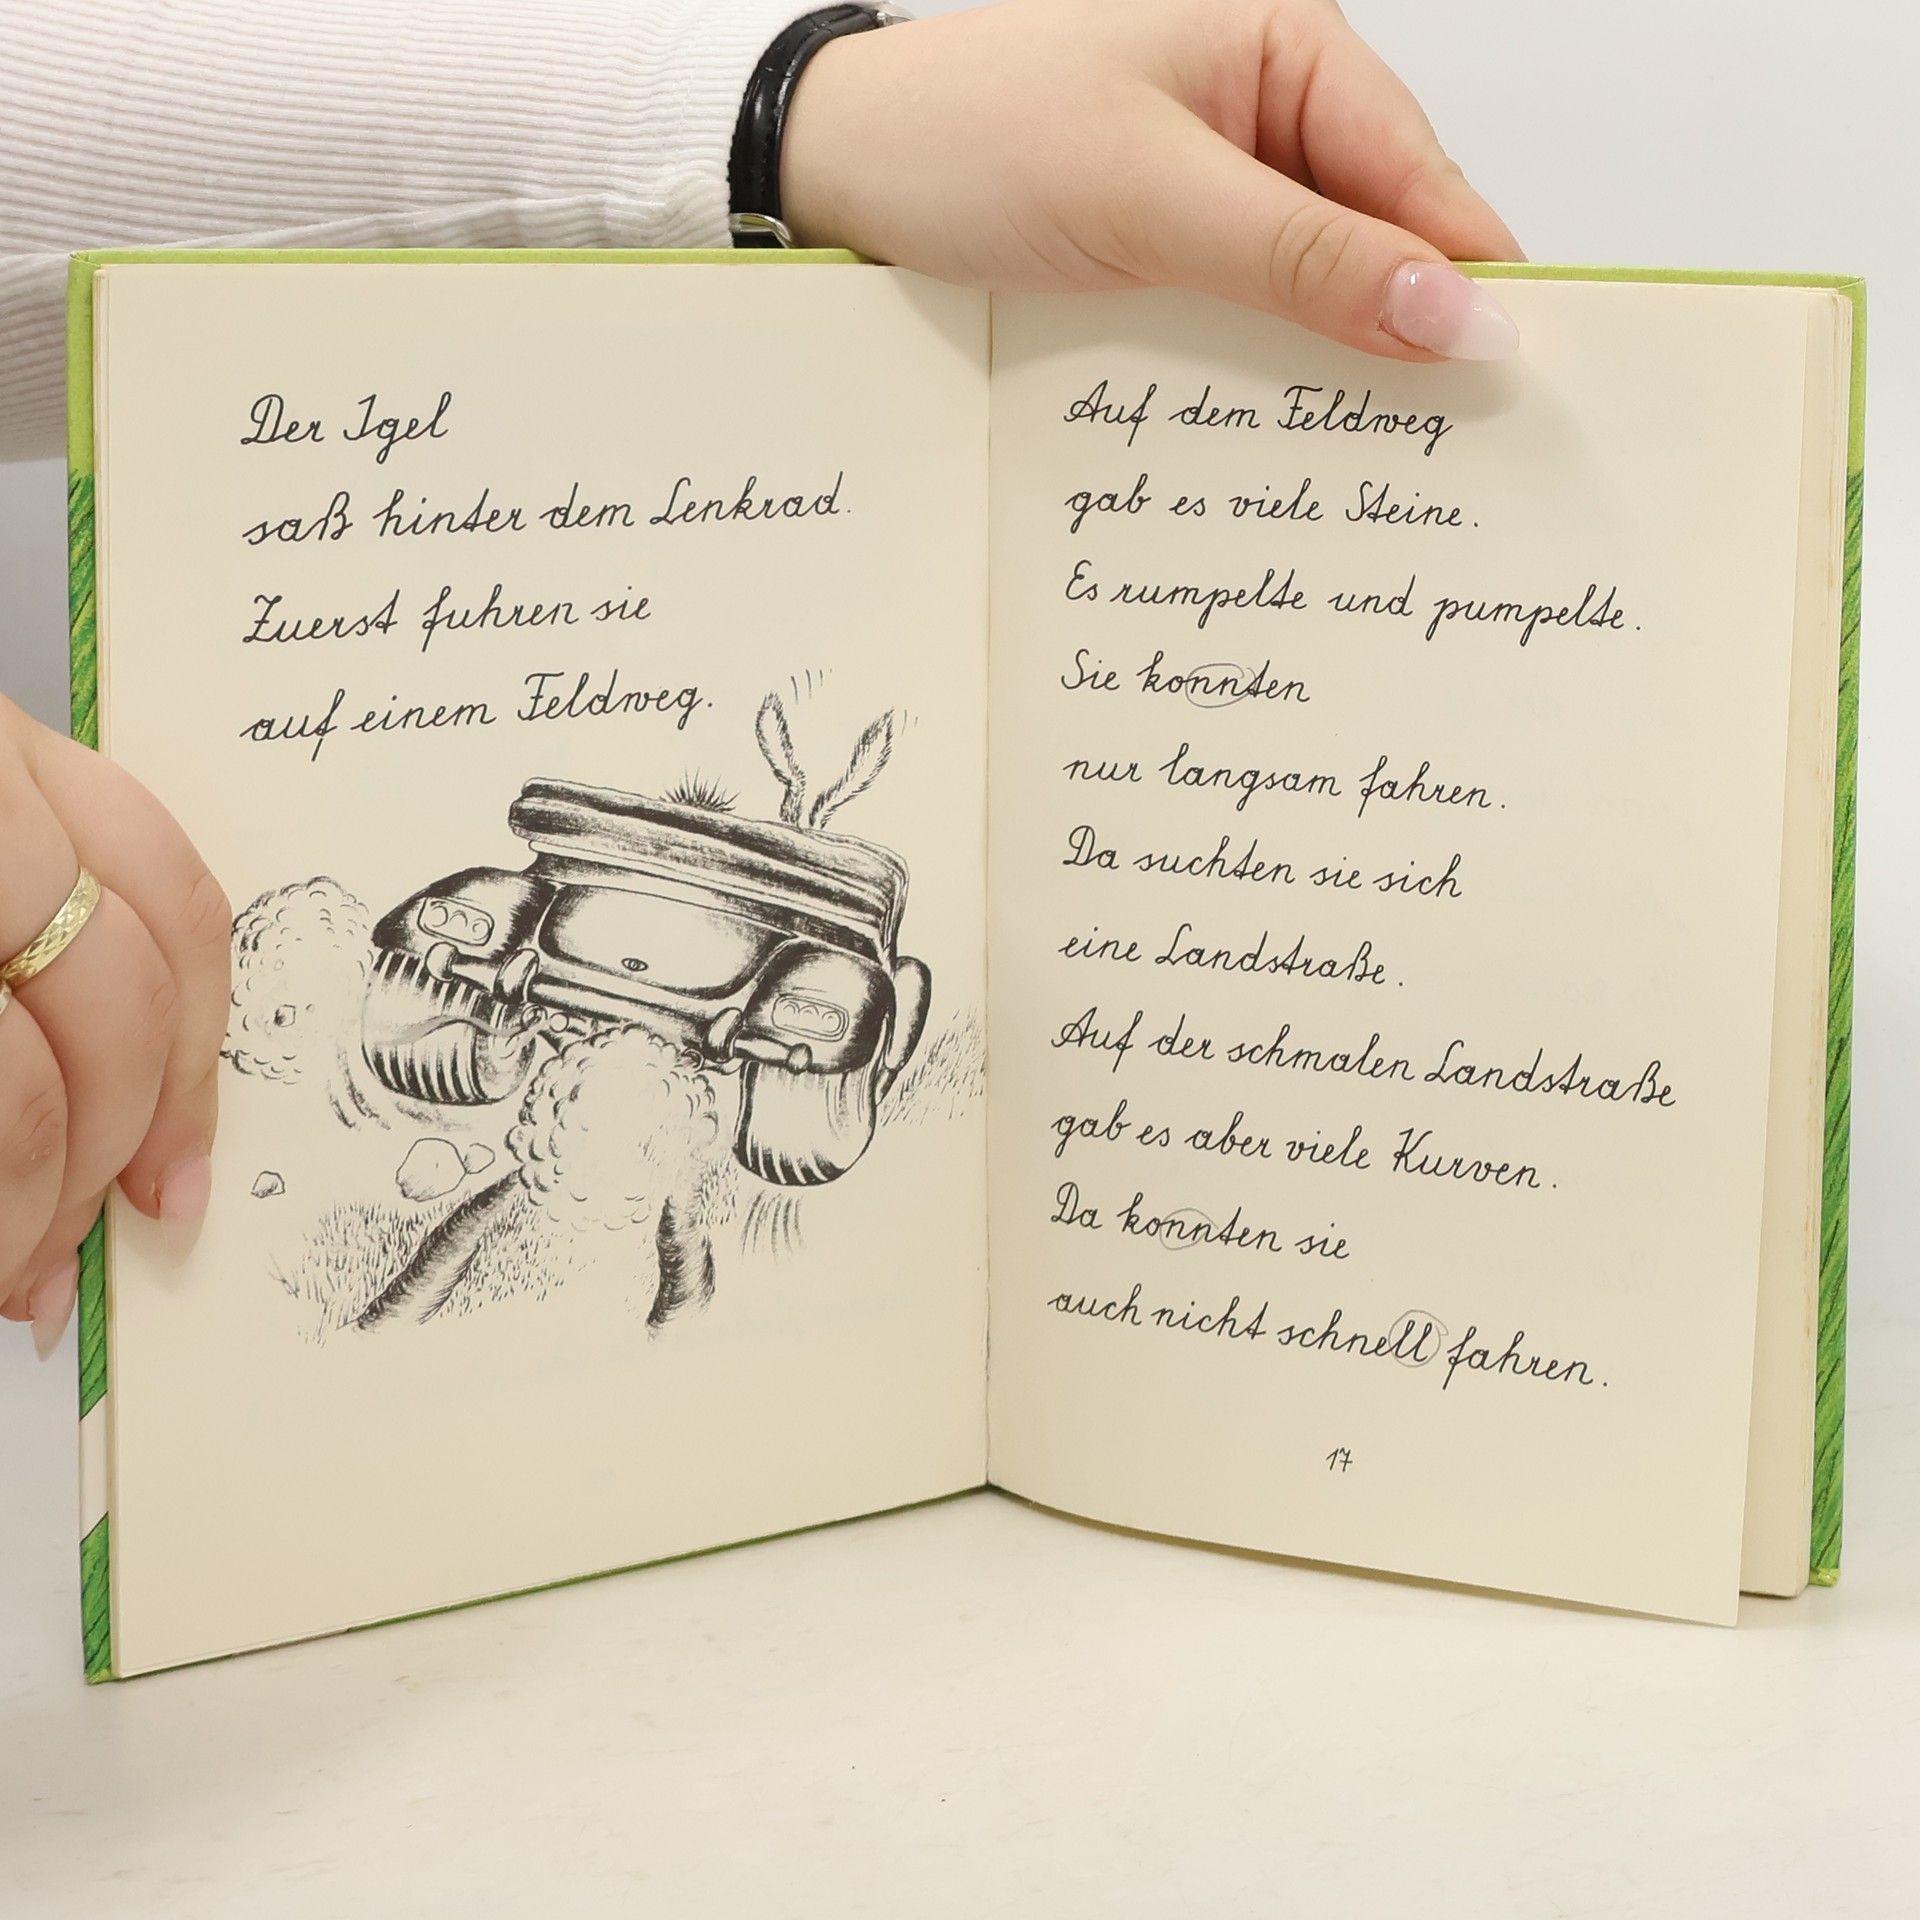 Der Igel
saß hinter dem Lenkrad.
Zuerst fuhren sie
auf einem Feldweg.
Auf dem Feldweg
gab es viele Steine.
Es rumpelte und pumpelte.
Sie konnten
nur langsam fahren.
Da suchten sie sich
eine Landstraße.
Auf der schmalen Landstraße
gab es aber viele Kurven.
Da konnten sie
auch nicht schnell fahren.
17